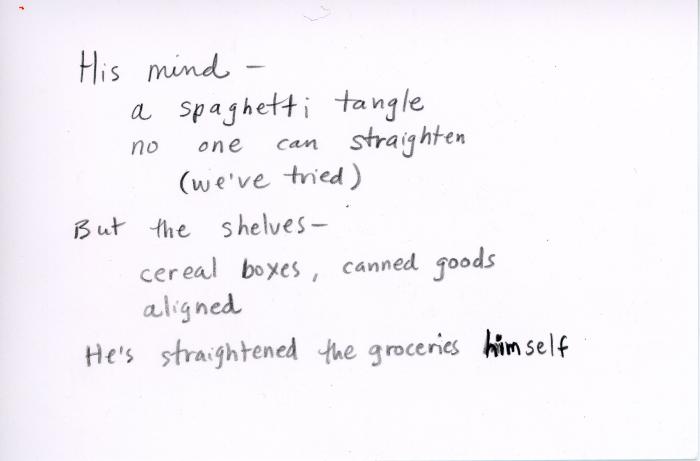 His mind –
a spaghetti tangle
no one can straighten
(we've tried)
But the shelves –
cereal boxes, canned goods
aligned
He's straightened the groceries himself